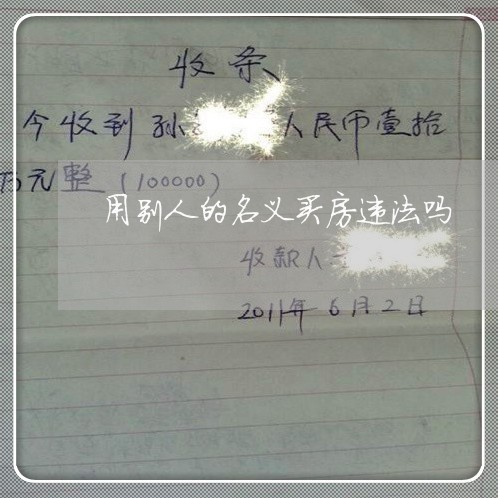 收条
今收到孙 人民币壹拾
万元整(100000)
用别人的名义买房违法吗
收款人
2011年6月2日